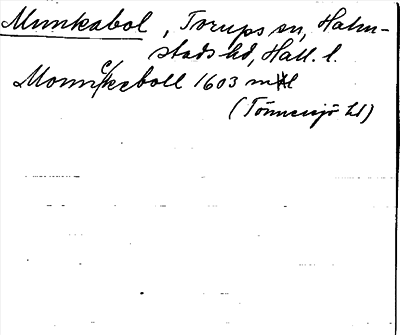 Munkabol, Torups sn, Halm-
stads hd, Hall. l.
Monnickeboll 1603 mtl
(Tönnersjö hd)